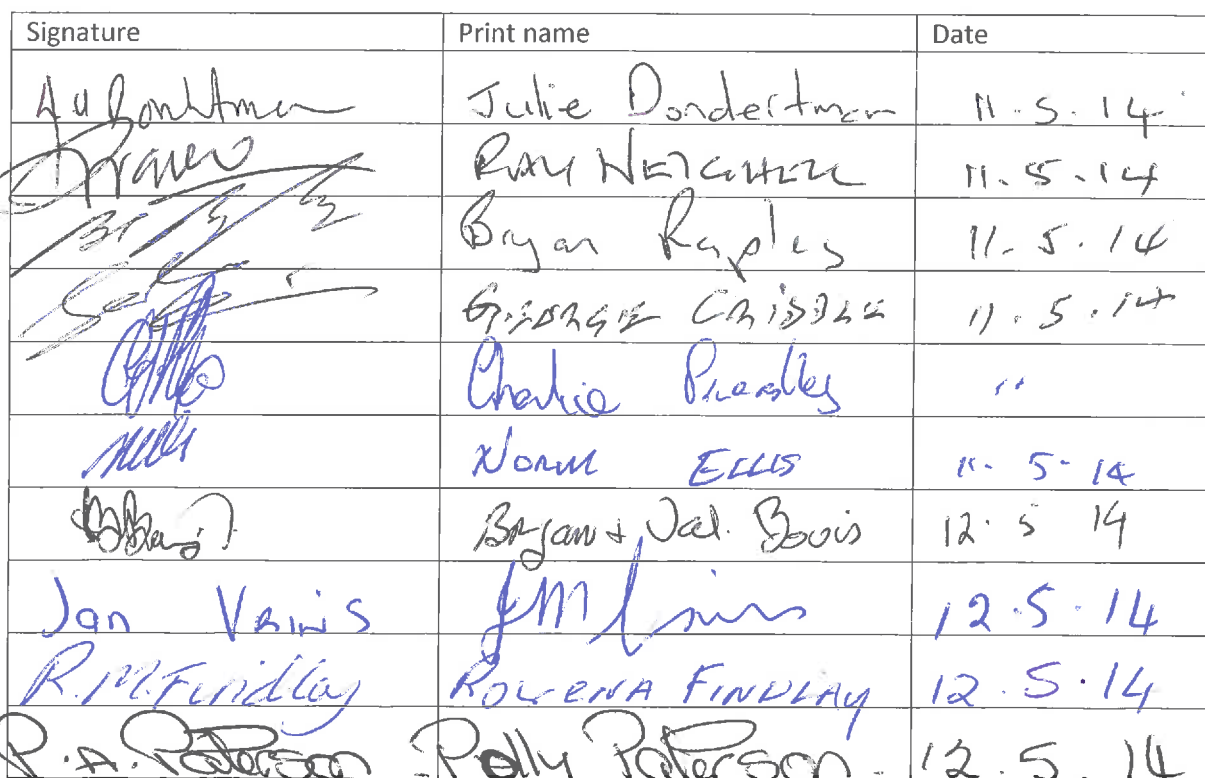 Signature Print name Date
Julie Dondertman 11.5.14
RAY 11.5.14
Bryan Rapley 11.5.14
GEORGE CRIBBLE 11.5.14
Charlie "
NORM ELLIS 11-5-14
Bryan + Val. Bovis 12.5 14
Jan 12.5.14
R.M.Findlay ROWENA FINDLAY 12.5.14
P.A. Paterson Polly Paterson 12.5.14